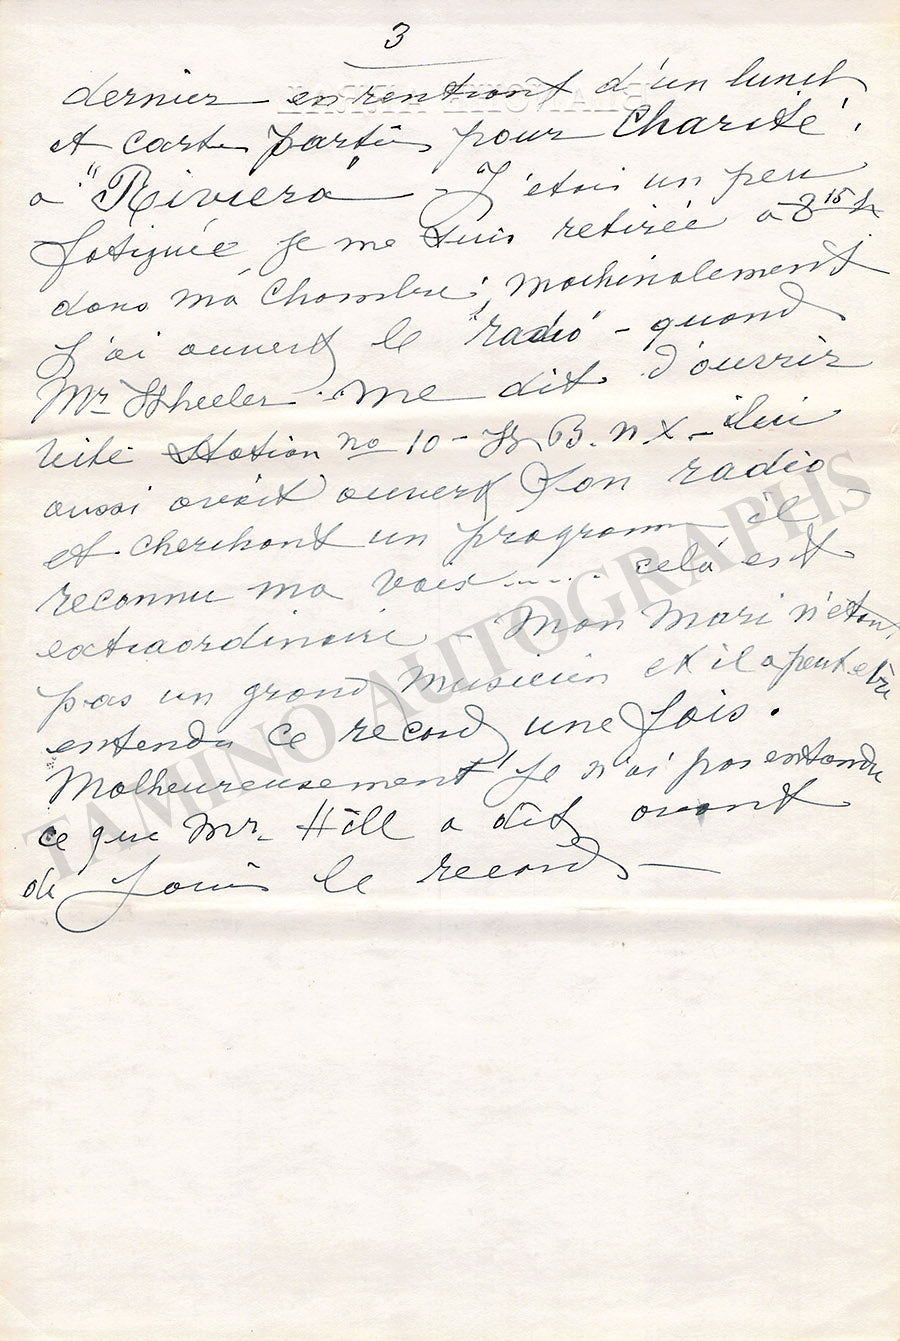 3
dernier en rentrant d'un lunch
et carte partie pour "Charité"
a "Riviera" - J'etais un peu
fatiguée je me suis retirée a 8 15 h
dans ma Chambre; machinalement
j'ai ouvert le "radio" - quand
Mr Wheeler me dit d'ouvrir
vite Station no 10 - W. B. n X. - lui
aussi avait ouvert son radio
et cherchant un programme
reconnu ma voix ..... cela est
extraordinaire - Mon Mari n'etant
pas un grand Musicien et il a peut etre
entendu ce record une fois.
Malheureusement je n'ai pas entendu
ce que Mr. Hill a dit avant
de Jouer le record -
TAMINO AUTOGRAPHS